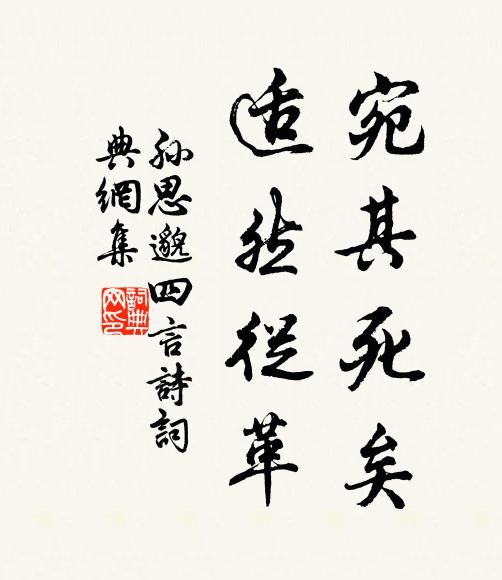 宛其死矣
适然從革
孫思邈四言詩詞
典網集
詞典
网印